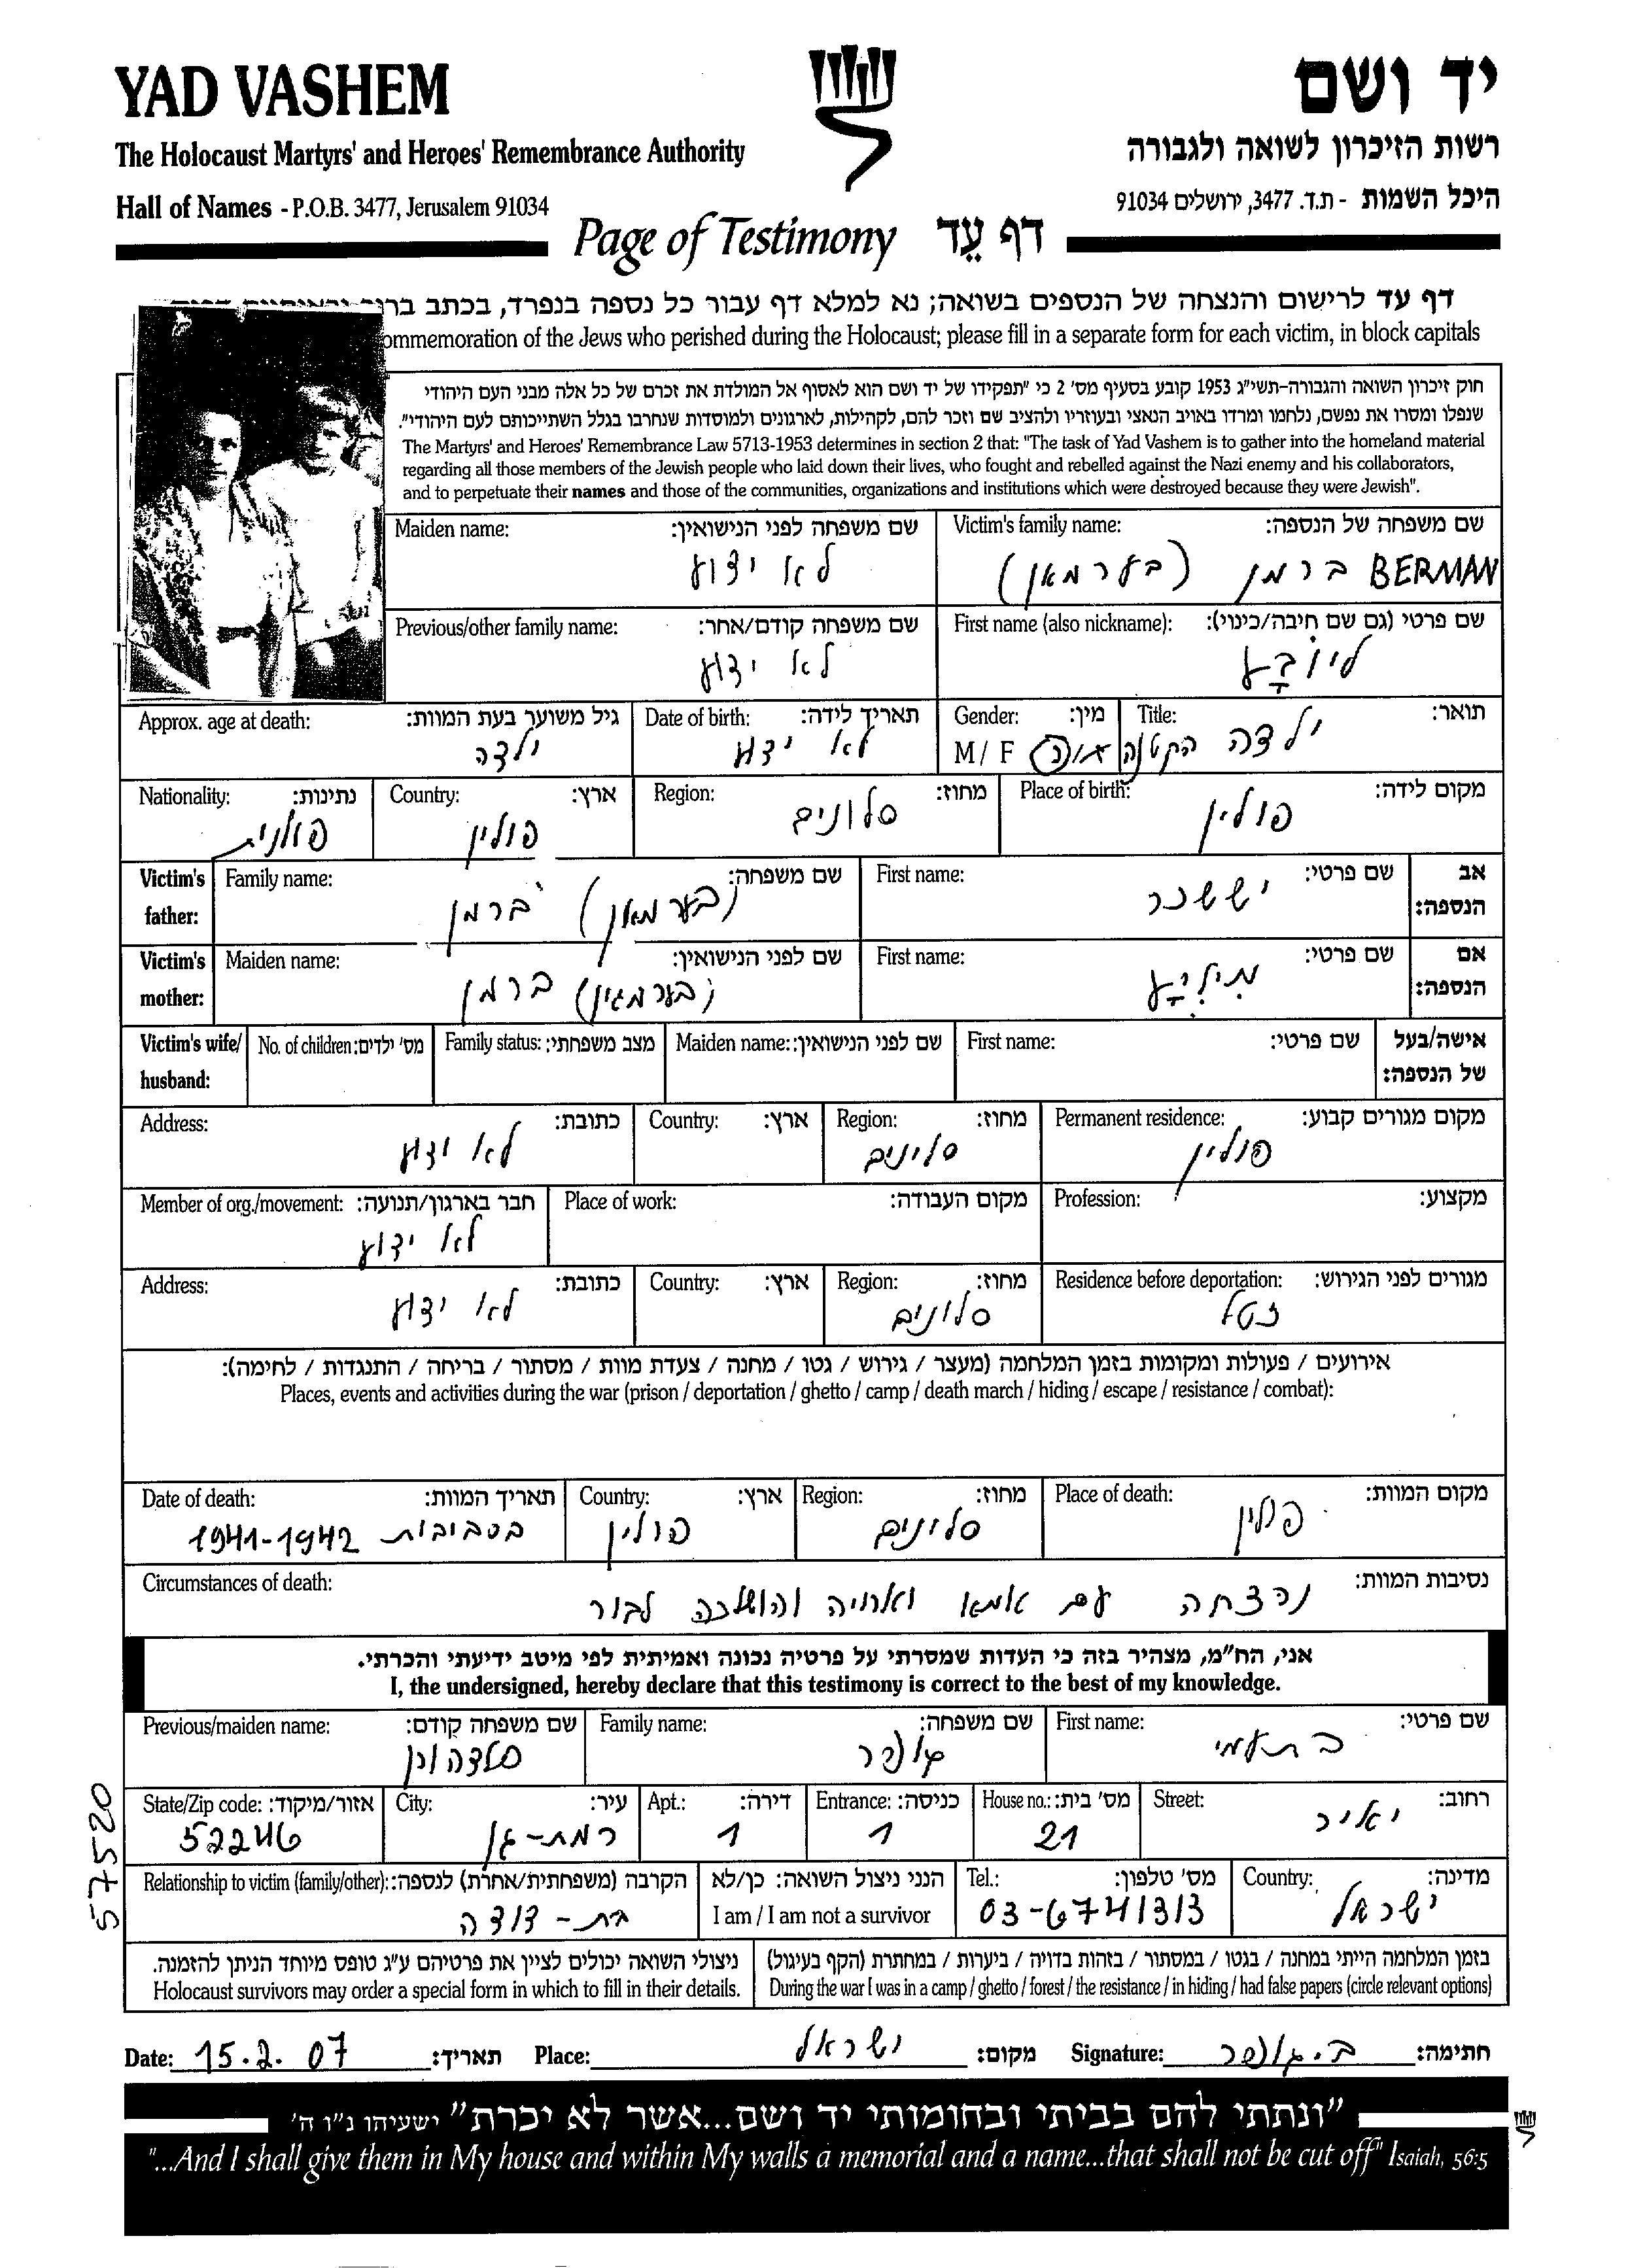 YAD VASHEM
יד ושם
The Holocaust Martyrs' and Heroes' Remembrance Authority
רשות הזיכרון לשואה ולגבורה
Hall of Names - P.O.B. 3477, Jerusalem 91034
היכל השמות - ת.ד. 3477, ירושלים 91034
Page of Testimony דף עֵד
דף עד לרישום והנצחה של הנספים בשואה; נא למלא דף עבור כל נספה בנפרד, בכתב
ommemoration of the Jews who perished during the Holocaust; please fill in a separate form for each victim, in block capitals
חוק זיכרון השואה והגבורה-תשי"ג 1953 קובע בסעיף מס' 2 כי "תפקידו של יד ושם הוא לאסוף אל המולדת את זכרם של כל אלה מבני העם היהודי
שנפלו ומסרו את נפשם, נלחמו ומרדו באויב הנאצי ובעוזריו ולהציב שם וזכר להם, לקהילות, לארגונים ולמוסדות שנחרבו בגלל השתייכותם לעם היהודי".
The Martyrs' and Heroes' Remembrance Law 5713-1953 determines in section 2 that: "The task of Yad Vashem is to gather into the homeland material
regarding all those members of the Jewish people who laid down their lives, who fought and rebelled against the Nazi enemy and his collaborators,
and to perpetuate their names and those of the communities, organizations and institutions which were destroyed because they were Jewish".
Maiden name: שם משפחה לפני הנישואין: Victim's family name: שם משפחה של הנספה:
לא ידוע
BERMAN ברמן (בערמאן)
Previous/other family name: שם משפחה קודם/אחר: First name (also nickname): שם פרטי (גם שם חיבה/כינוי):
לא ידוע
ליובָּע
Approx. age at death: גיל משוער בעת המוות: Date of birth: תאריך לידה: Gender: מין: Title: תואר:
ילדה
לא ידוע
M / F
ילדה הקטנה
Nationality: נתינות: Country: ארץ: Region: מחוז: Place of birth: מקום לידה:
פולנית
פולין
סלונים
פולין
Victim's father: Family name: שם משפחה: First name: שם פרטי: אב הנספה:
ברמן (בערמאן)
יששכר
Victim's mother: Maiden name: שם לפני הנישואין: First name: שם פרטי: אם הנספה:
ברמן
Victim's wife/ husband: No. of children: מס' ילדים: Family status: מצב משפחתי: Maiden name: שם לפני הנישואין: First name: שם פרטי: אישה/בעל של הנספה:
Address: כתובת: Country: ארץ: Region: מחוז: Permanent residence: מקום מגורים קבוע:
לא ידוע
סלונים
פולין
Member of org./movement: חבר בארגון/תנועה: Place of work: מקום העבודה: Profession: מקצוע:
לא ידוע
Address: כתובת: Country: ארץ: Region: מחוז: Residence before deportation: מגורים לפני הגירוש:
לא ידוע
סלונים
זטל
אירועים / פעולות ומקומות בזמן המלחמה (מעצר / גירוש / גטו / מחנה / צעדת מוות / מסתור / בריחה / התנגדות / לחימה):
Places, events and activities during the war (prison / deportation / ghetto / camp / death march / hiding / escape / resistance / combat):
Date of death: תאריך המוות: Country: ארץ: Region: מחוז: Place of death: מקום המוות:
בסביבות 1941-1942
פולין
סלונים
פולין
Circumstances of death: נסיבות המוות:
נרצחה עם אמא ואחיה והושלכה לבור
אני, הח"מ, מצהיר בזה כי העדות שמסרתי על פרטיה נכונה ואמיתית לפי מיטב ידיעתי והכרתי.
I, the undersigned, hereby declare that this testimony is correct to the best of my knowledge.
Previous/maiden name: שם משפחה קודם: Family name: שם משפחה: First name: שם פרטי:
גופר
בת עמי
State/Zip code: אזור/מיקוד: City: עיר: Apt.: דירה: Entrance: כניסה: House no.: מס' בית: Street: רחוב:
52246
רמת-גן
1
1
21
יאיר
Relationship to victim (family/other): הקרבה (משפחתית/אחרת) לנספה: הנני ניצול השואה: כן/לא Tel.: מס' טלפון: Country: מדינה:
בת-דודה
I am / I am not a survivor
03-6741313
ישראל
ניצולי השואה יכולים לציין את פרטיהם ע"ג טופס מיוחד הניתן להזמנה.
Holocaust survivors may order a special form in which to fill in their details.
בזמן המלחמה הייתי במחנה / בגטו / במסתור / בזהות בדויה / ביערות / במחתרת (הקף בעיגול)
During the war I was in a camp / ghetto / forest / the resistance / in hiding / had false papers (circle relevant options)
Date: 15.2.07 תאריך: Place: ישראל מקום: Signature: ב. גופר חתימה:
57520
"ונתתי להם בביתי ובחומותי יד ושם...אשר לא יכרת" ישעיהו נ"ו ה'
"...And I shall give them in My house and within My walls a memorial and a name...that shall not be cut off" Isaiah, 56:5